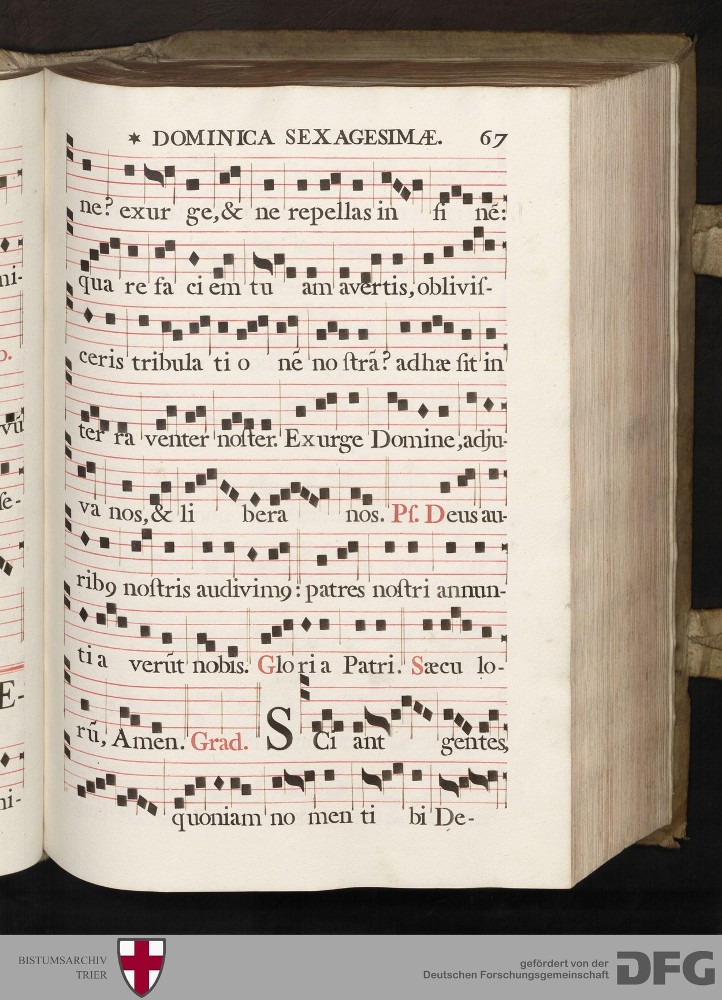 ✶ DOMINICA SEXAGESIMÆ. 67
ne? exur ge, & ne repellas in fi nẽ:
qua re fa ci em tu am avertis, obliviſ-
ceris tribula ti o nẽ no ſtrã? adhæ ſit in
ter ra venter noſter. Exurge Domine, adju-
va nos, & li bera nos. Pſ. Deus au-
ribꝰ noſtris audivimꝰ: patres noſtri annun-
ti a verũt nobis. Glo ri a Patri. Sæcu lo-
rũ, Amen. Grad. S Ci ant gentes,
quoniam no men ti bi De-
ni-
o.
vũ
ſe-
E-
ni-
BISTUMSARCHIV
TRIER
gefördert von der
Deutschen Forschungsgemeinschaft
DFG